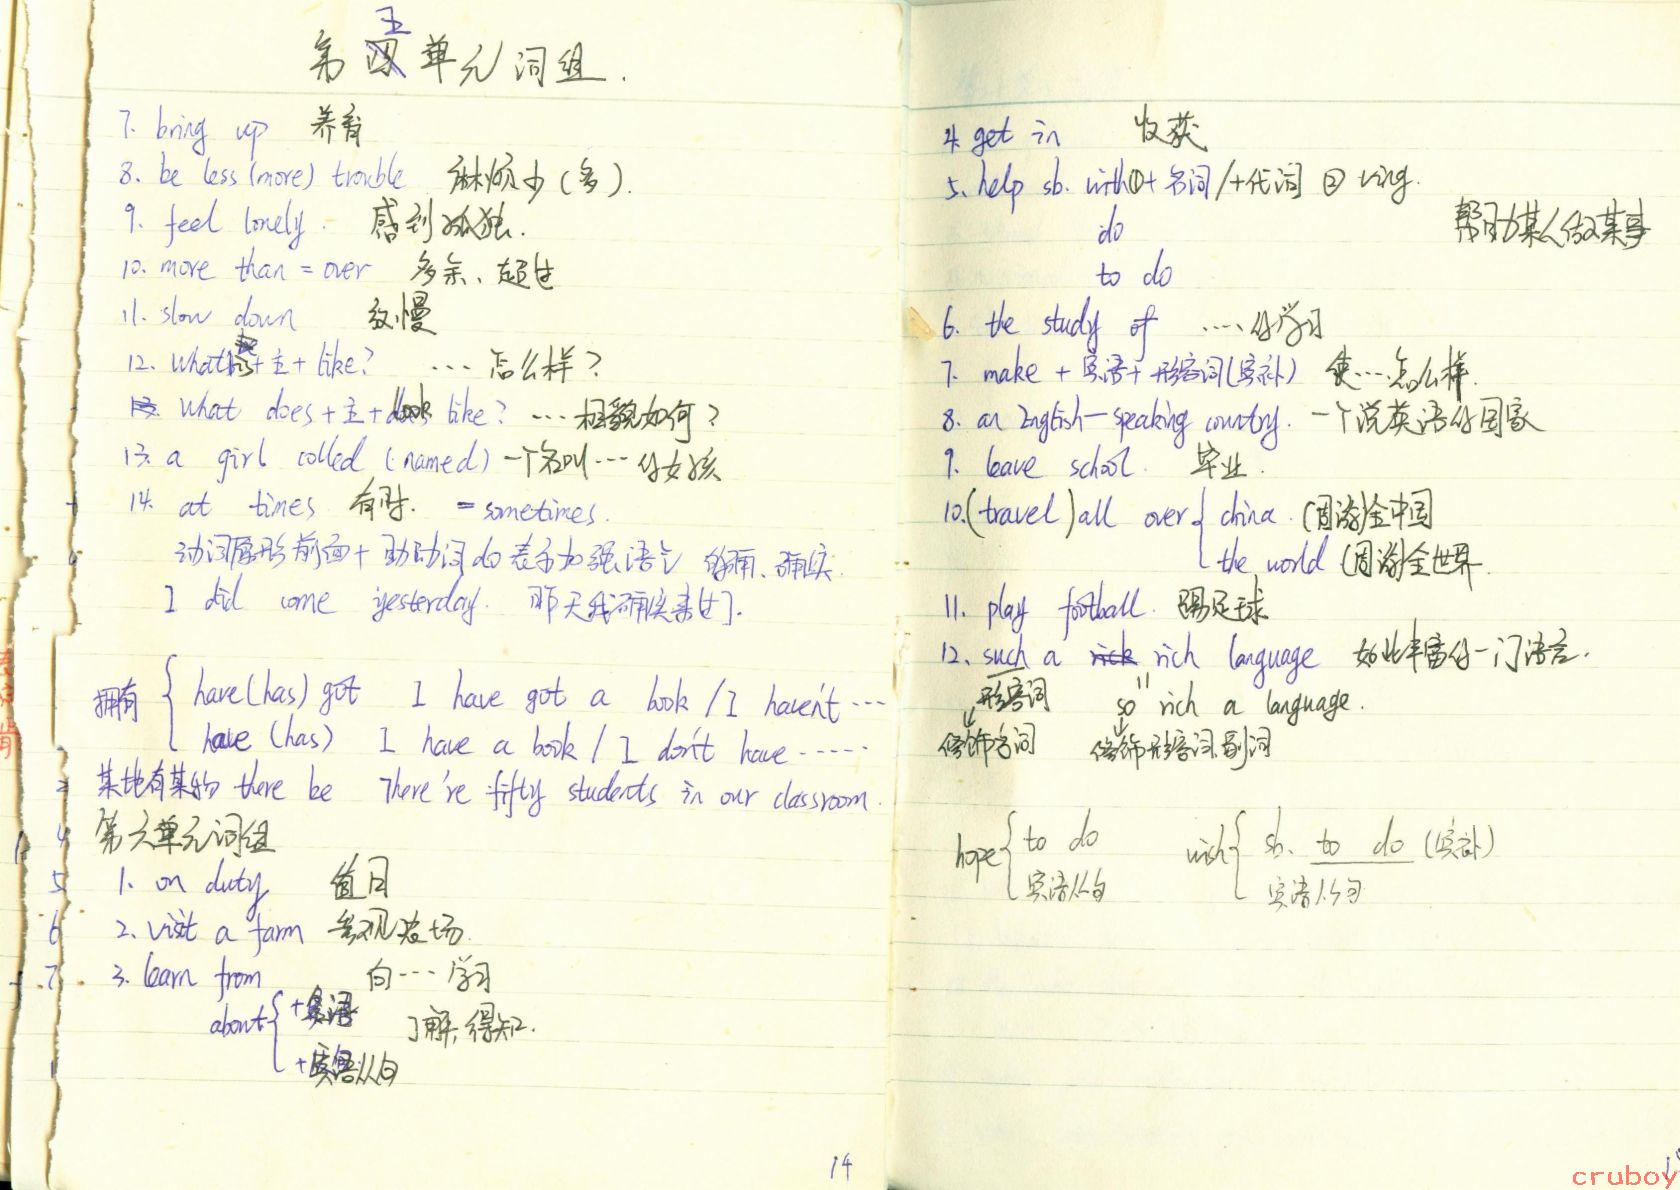 第五单元词组.
7. bring up 养育
8. be less (more) trouble 麻烦少(多).
9. feel lonely. 感到孤独.
10. more than = over 多余、超过
11. slow down 放慢
12. What is + 主 + like? … 怎么样?
What does + 主 + look like? … 相貌如何?
13. a girl called (named) 一个名叫…的女孩
14. at times 有时. = sometimes.
动词原形前面 + 助动词 do 表示加强语气 的确、确实.
I did come yesterday. 昨天我确实来过了.
拥有
have (has) got I have got a book / I haven't …
have (has) I have a book / I don't have ……
某地有某物 there be There're fifty students in our classroom.
第六单元词组
1. on duty 值日
2. visit a farm 参观农场.
3. learn from 向…学习
about + 宾语 了解, 得知.
+ 宾语从句
14
4. get in 收获
5. help sb. with ① + 名词 / + 代词 ② ving.
do 帮助某人做某事
to do
6. the study of …. 的学习
7. make + 宾语 + 形容词 (宾补) 使…怎么样.
8. an English-speaking country. 一个说英语的国家
9. leave school. 毕业.
10. (travel) all over china. (周游)全中国
the world (周游)全世界.
11. play football. 踢足球
12. such a rich language 如此丰富的一门语言.
形容词 so rich a language.
修饰名词 修饰形容词.副词
hope to do wish sb. to do (宾补)
宾语从句 宾语从句
cruboy